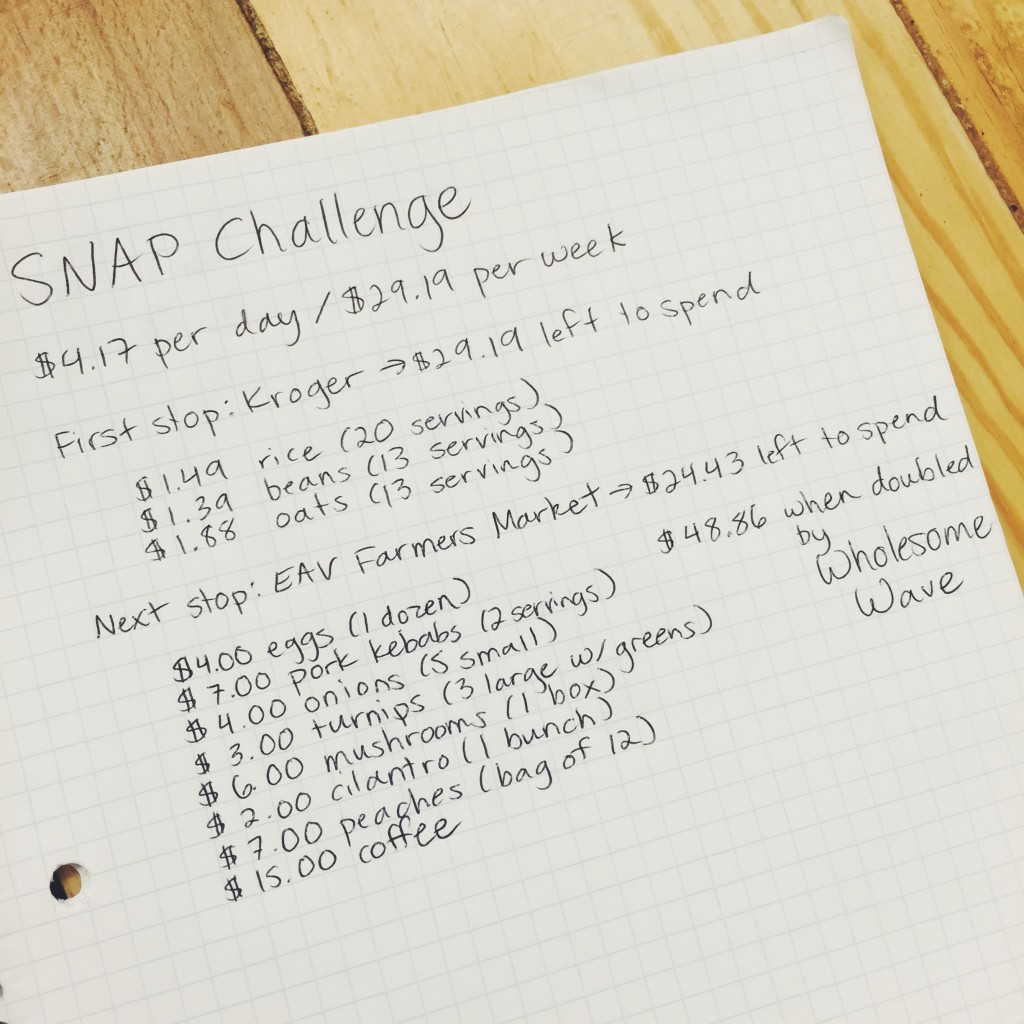 SNAP Challenge
$4.17 per day / $29.19 per week
First stop: Kroger → $29.19 left to spend
$1.49 rice (20 servings)
$1.39 beans (13 servings)
$1.88 oats (13 servings)
Next stop: EAV Farmers Market → $24.43 left to spend
$48.86 when doubled
by
Wholesome
Wave
$4.00 eggs (1 dozen)
$7.00 pork kebabs (2 servings)
$4.00 onions (5 small)
$3.00 turnips (3 large w/ greens)
$6.00 mushrooms (1 box)
$2.00 cilantro (1 bunch)
$7.00 peaches (bag of 12)
$15.00 coffee